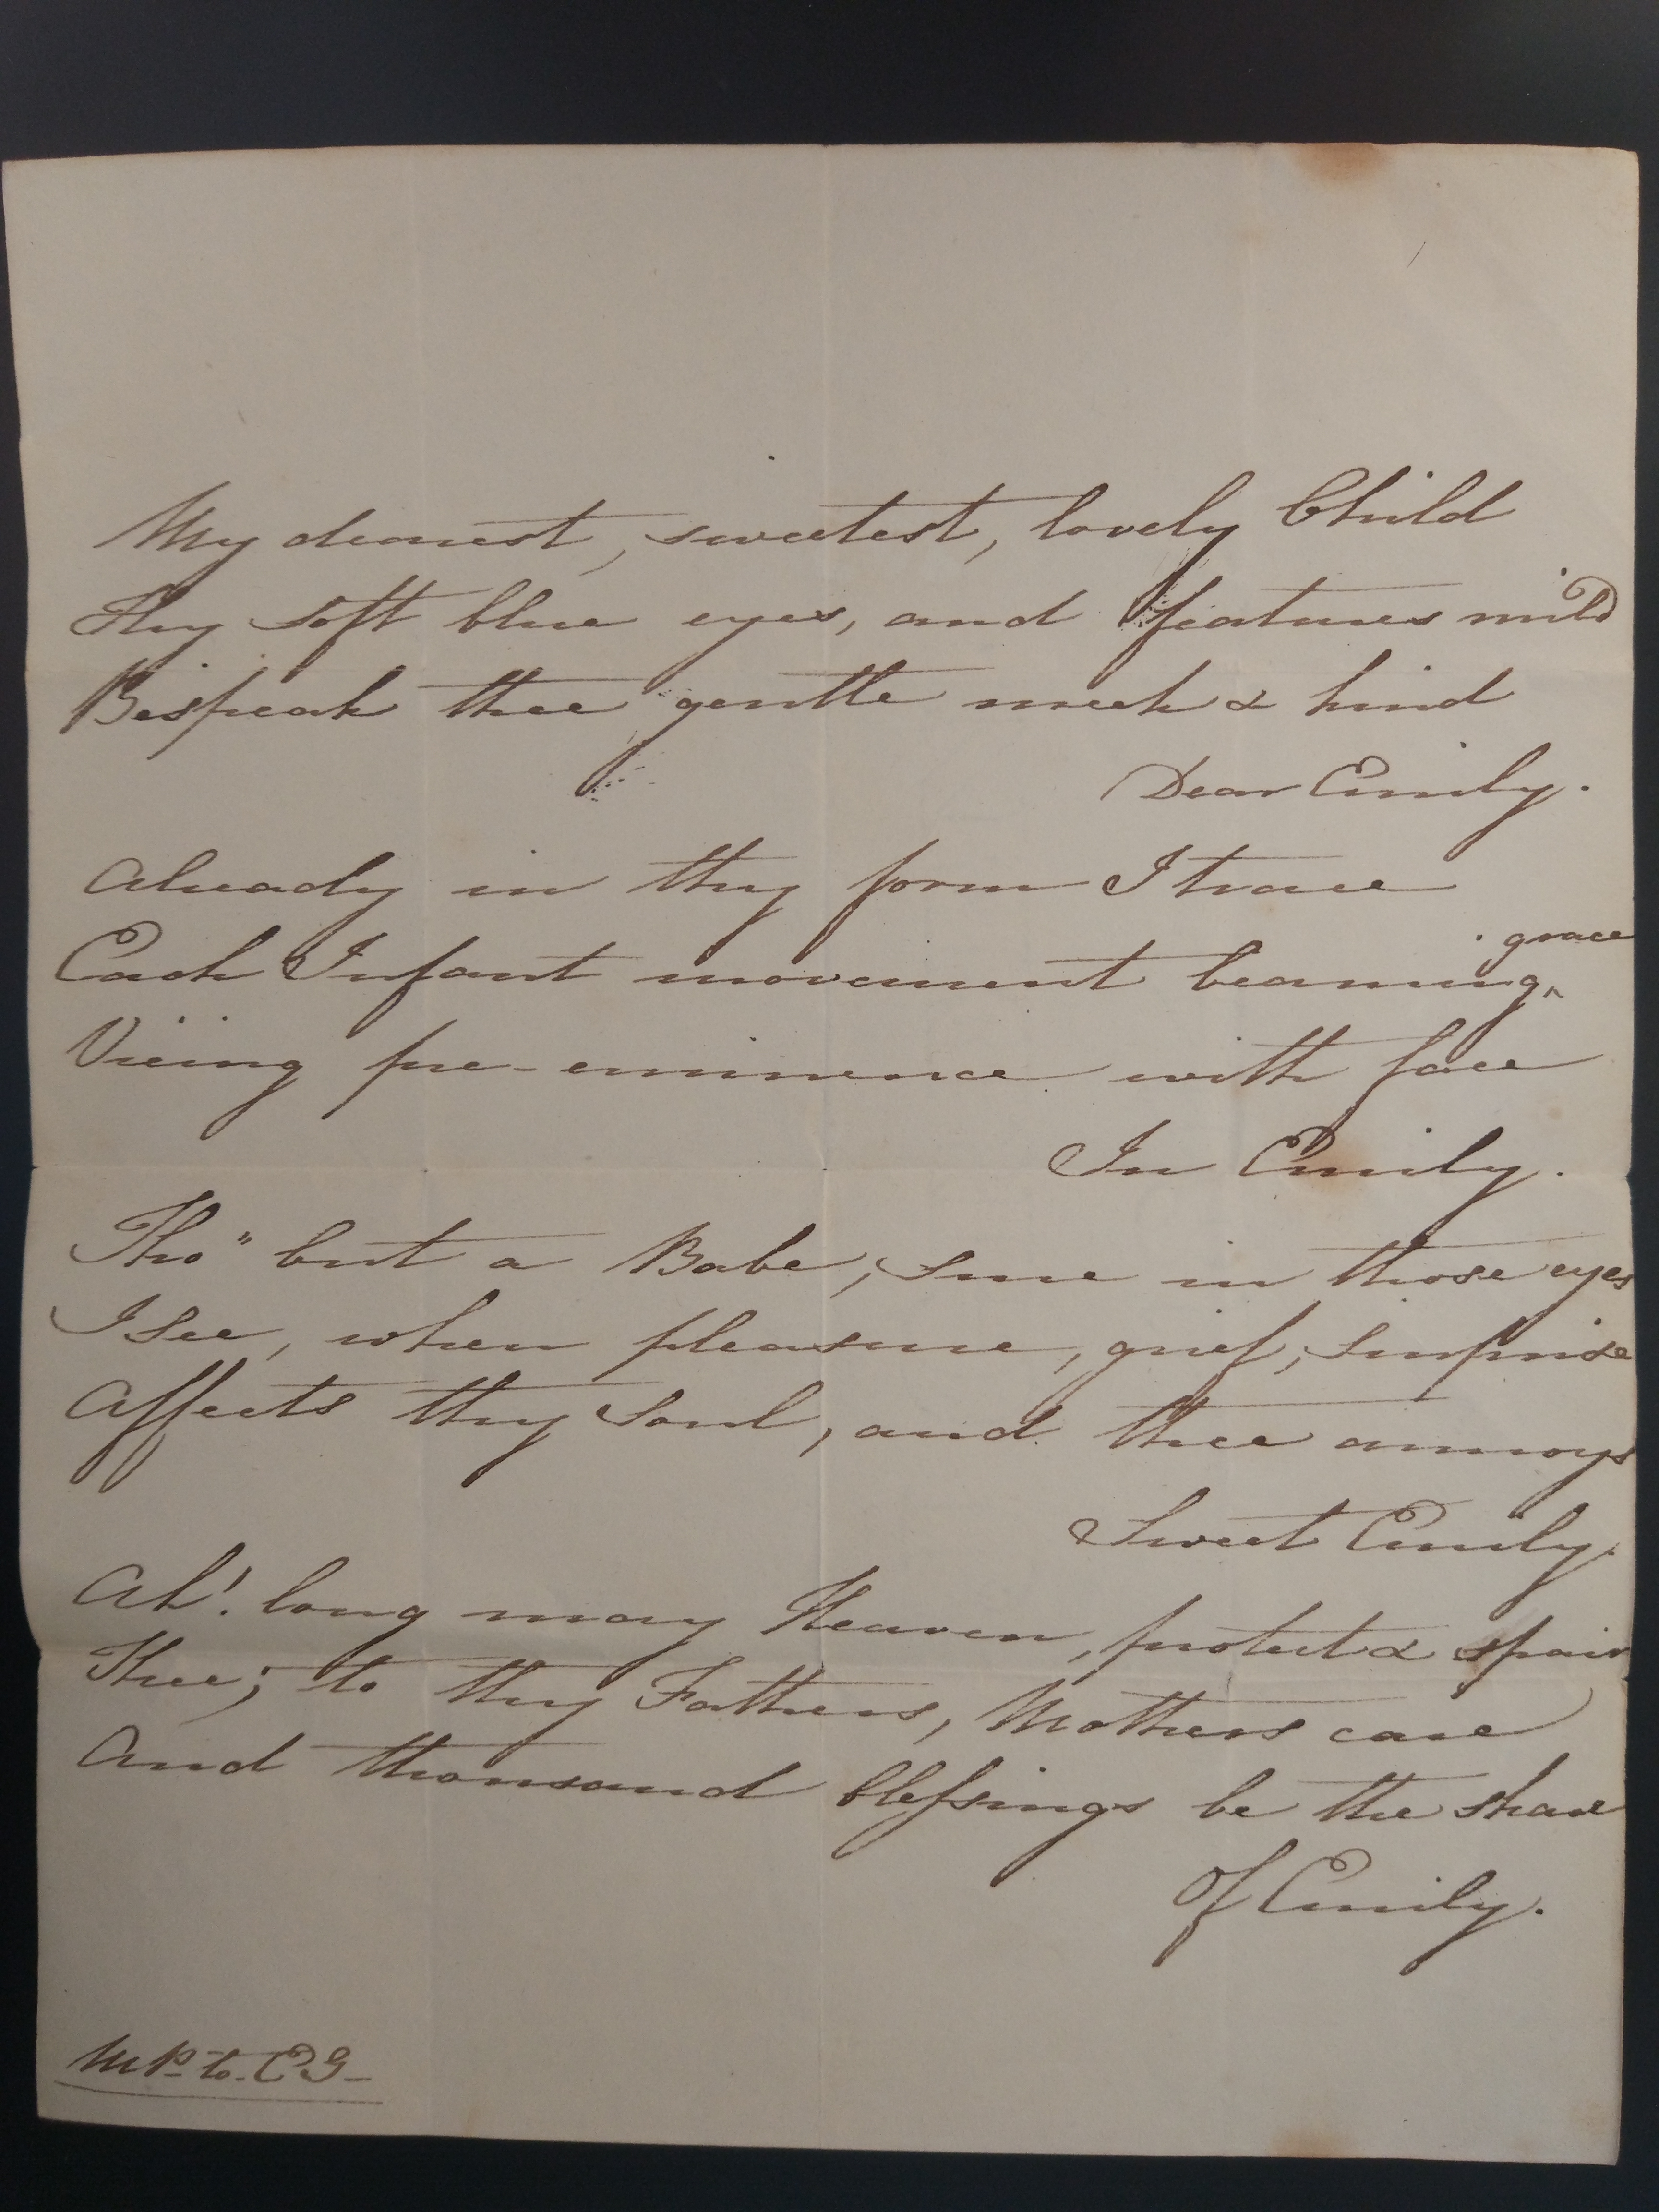 My dearest, sweetest, lovely Child
Thy soft blue eyes, and features mild
Bespeak thee gentle meek & kind
Dear Emily.
Already in thy form I trace
Each Infant movement beaming grace
Vieing pre-eminence with face
In Emily.
Tho" but a Babe, sure in those eyes
I see, when pleasure, grief, surprise
Affects thy Soul, and thee annoys
Sweet Emily.
Ah! long may Heaven, protect & spair
Thee; to thy Fathers, Mothers care
And thousand blessings be the share
Of Emily.
MP- to- EG-